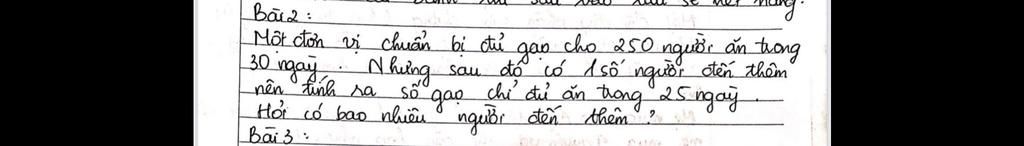 Bài 2 :
Một đơn vị chuẩn bị đủ gạo cho 250 người ăn trong
30 ngày . Nhưng sau đó có 1 số người đến thêm
nên tính ra số gạo chỉ đủ ăn trong 25 ngày .
Hỏi có bao nhiêu người đến thêm ?
Bài 3 :